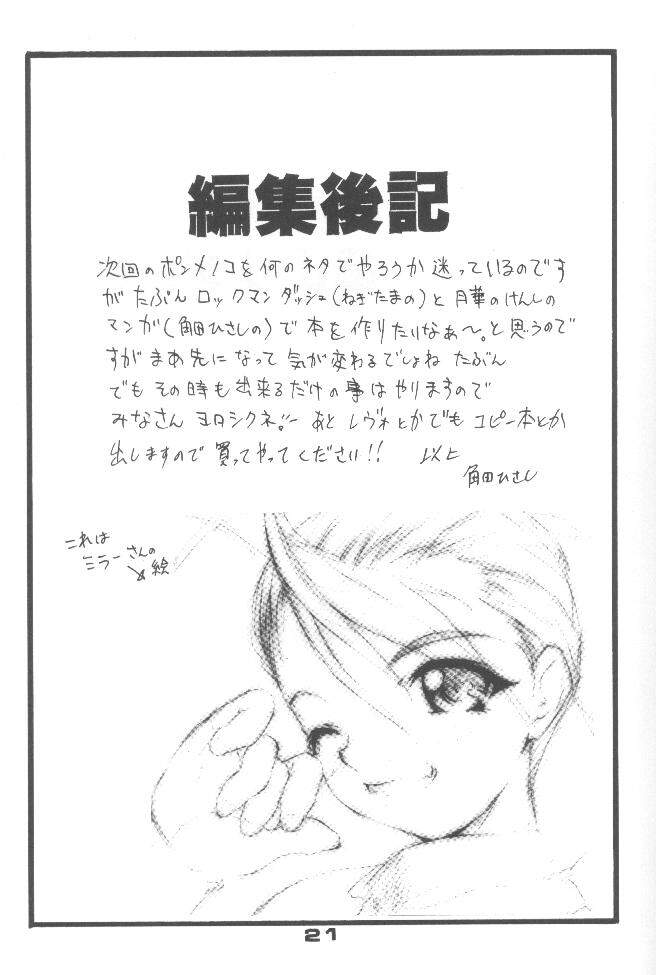 編集後記
次回のポンメノコを何のネタでやろうか迷っているのです
がたぶんロックマンダッシュ(ねぎたまの)と月華のけんしの
マンガ(角田ひさしの)で本を作りたいなぁ〜。と思うので
すがまあ先になって気が変わるでしょね たぶん
でも その時も出来るだけの事はやりますので
みなさん ヨロシクネ。 あと レヴォとかでも コピー本とか
出しますので 買ってやってください!! 以上
角田ひさし
これは
ミラーさんの
絵
21